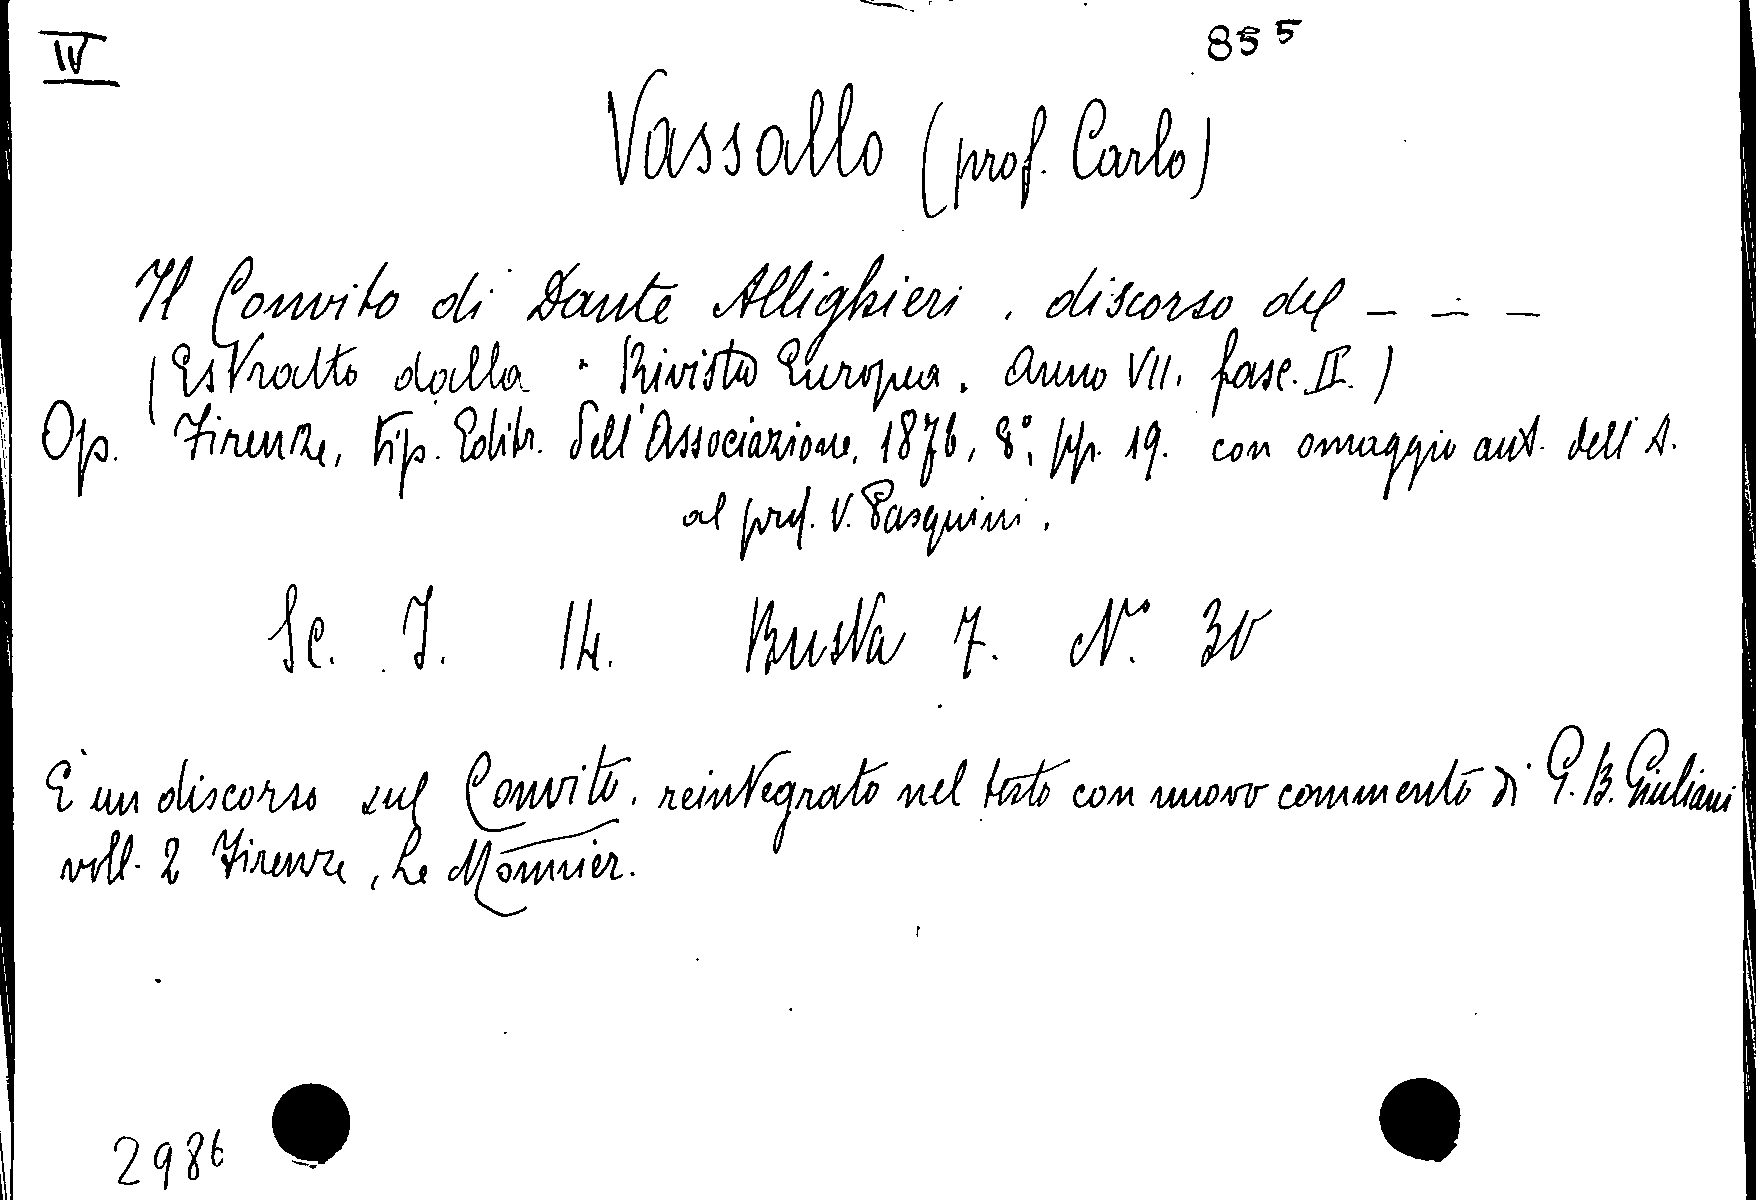 IV
855
Vassallo (prof. Carlo)
Il Convito di Dante Allighieri. discorso del _ _ _
(Estratto dalla "Rivista Europea. Anno VII. fasc. II.)
Op. Firenze, Tip. Editr. dell'Associazione, 1876, 8°, pp. 19. con omaggio aut. dell'A.
al prof. V. Pasquini.
Sc. I. 14. Busta 7. N° 30
È un discorso sul Convito. reintegrato nel testo con nuovo commento di G. B. Giuliani
voll. 2 Firenze, Le Monnier.
2986